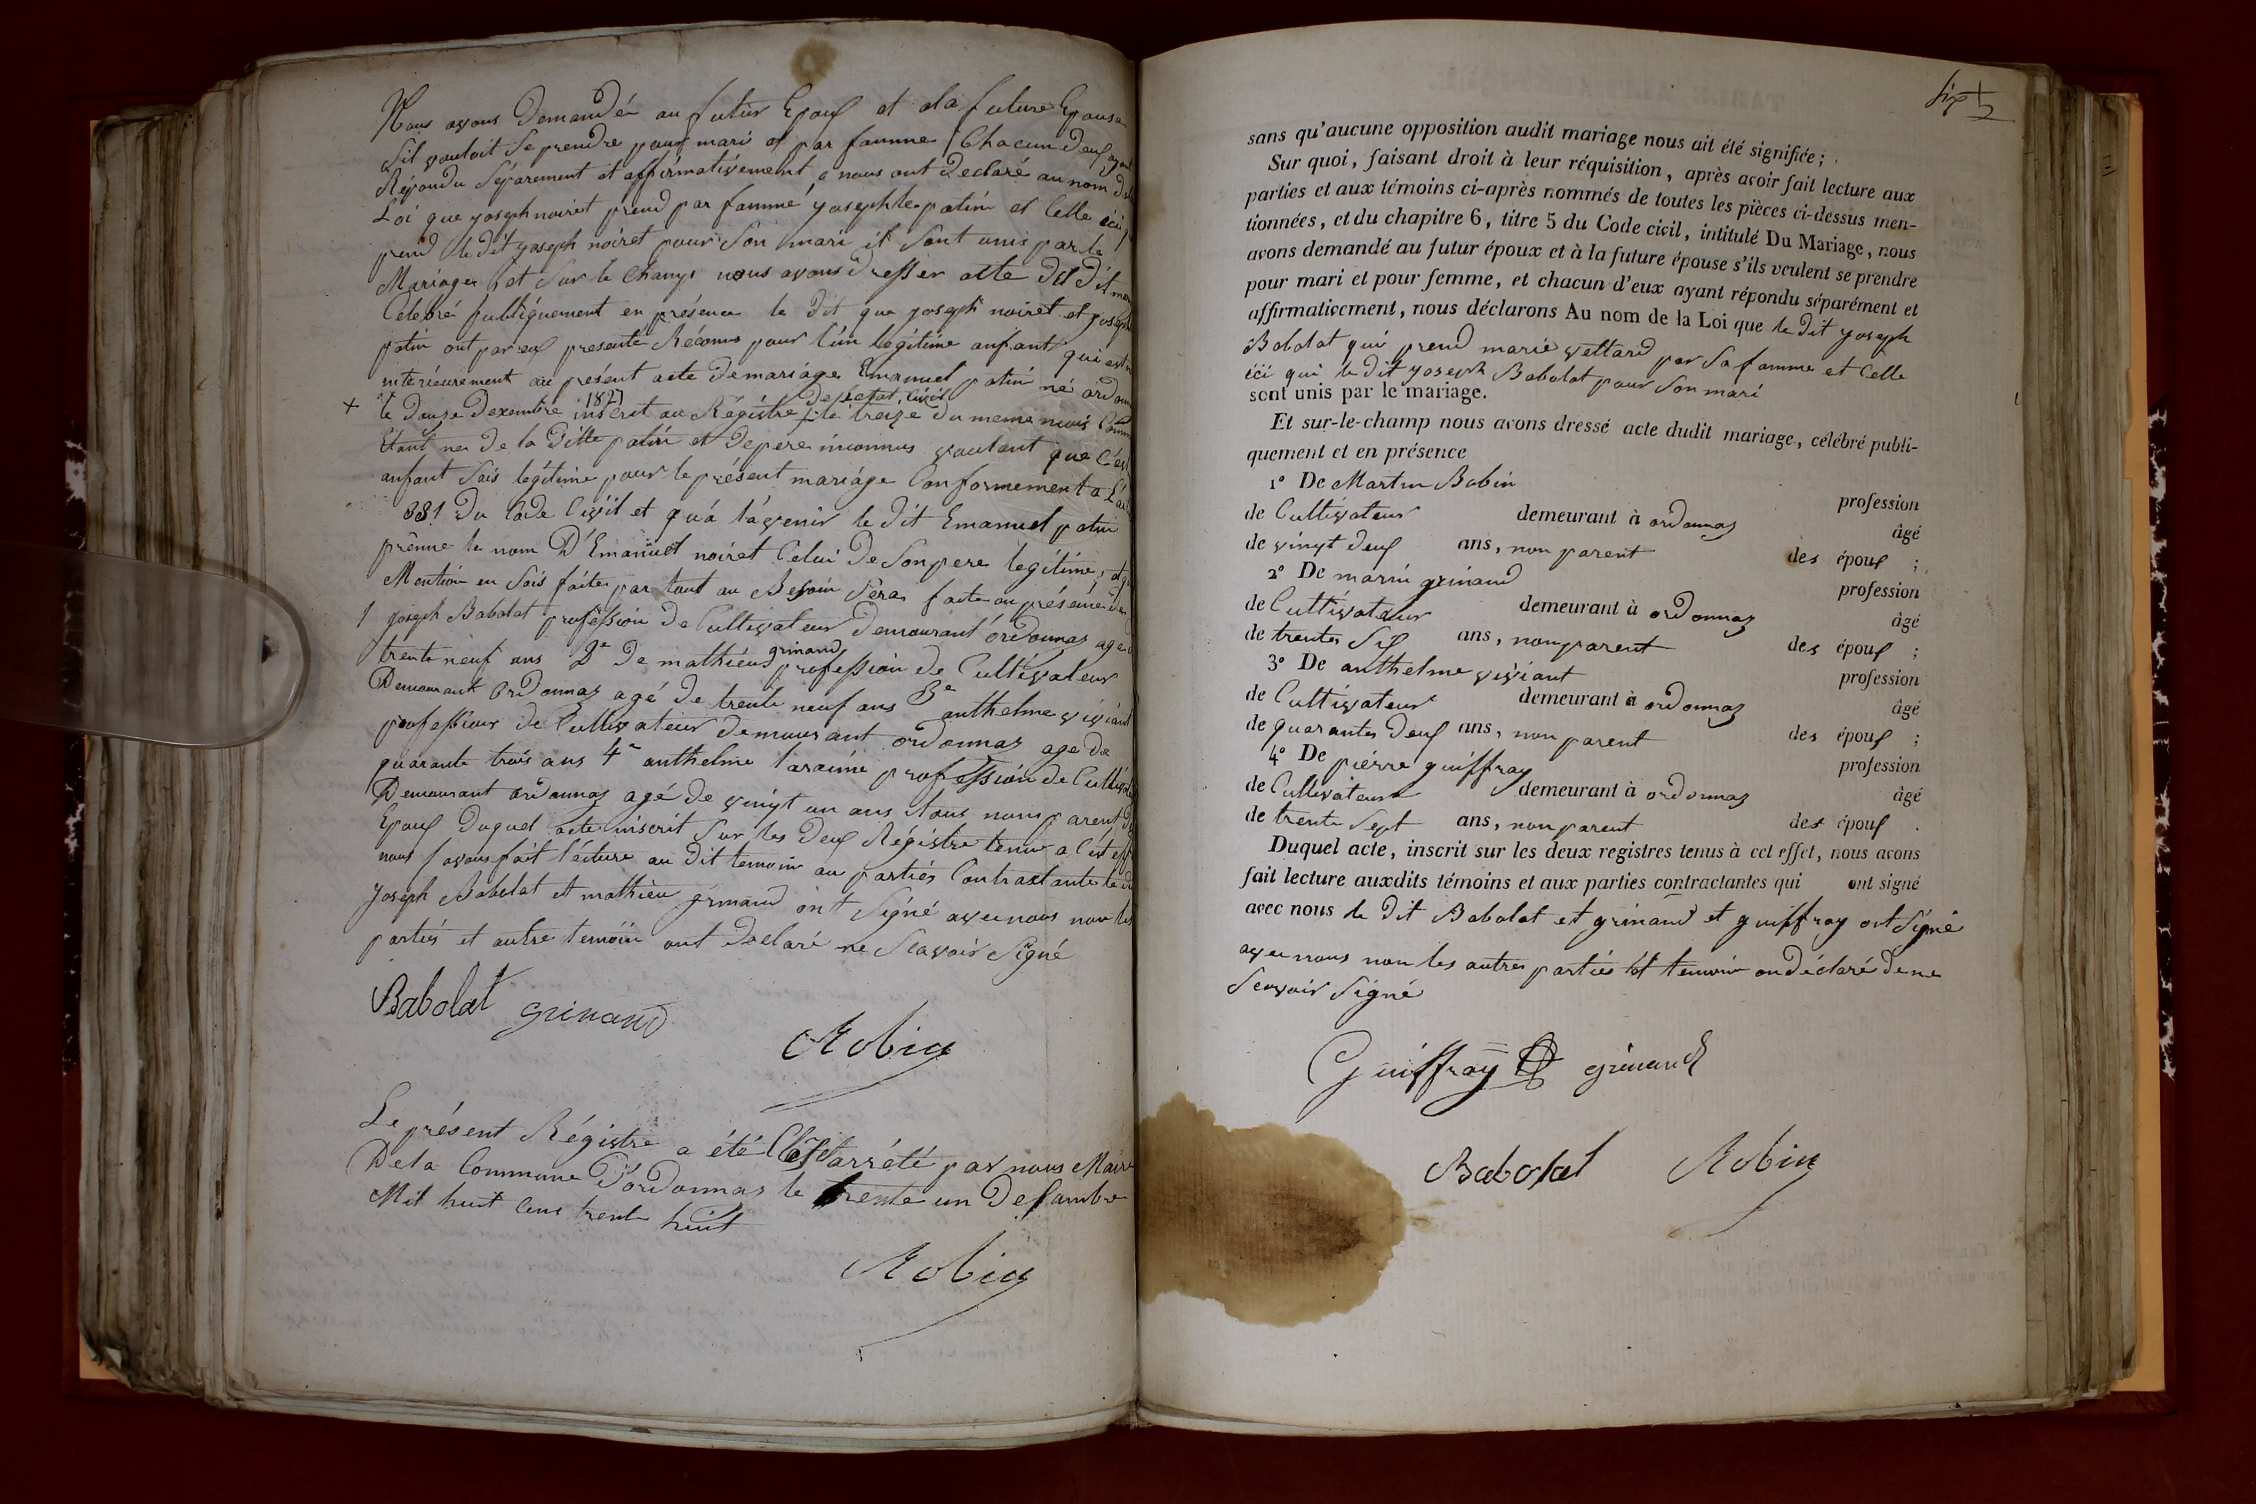 Nous avons demandér au futur Epoux et ala future Epouse
Sil vouloit Se prendre pour mari et par famme Chacun deux ayant
Répondu Séparement et affirmativement, nous ont Declaré au nom de
Loi que yoseph noiret prend par famme yosephte patin et Celle ici
prend le dit yoseph noiret pour Son mari il Sont unis par le
Mariage, et Sur le Champs nous avons dresser acte du dit
Célébré publiquement en présence le dit que yoseph noiret et yoseph
patin ont par eux presente Réconus pour l'un légitime anfant qui est
intérieurement au présent acte de mariage Emanuel patin né ordonnas
+ le douze Dexembre 1821 inscrit au Régistre de letat civil le treize du meme mois
Etant né de la ditte patin et de pere inconnus voulant que C'est
anfant Sois légitime pour le présent mariage Conformement a L'art
331 du Code Civil et qu'a l'avenir le dit Emanuel patin
prenne le nom D'Emanuel noiret Celui de Son pere legitime,
Mention en Sois faite par tout au Besoin Sera faite en présence
1 yoseph Babolat profession de Cultivateur demeurant ordonnas age
trente neuf ans 2e de mathieu grinand profession de Cultivateur
Demeurant ordonnas agé de trente neuf ans 3e anthelme viviant
professiour de Cultivateur demeurant ordonnas age de
quarante trois ans 4e anthelme profession de Cultivateur
Demeurant ordonnas agé de vingt un ans tous non parent
Epoux duquel acte inscrit Sur les deux Régistre tenu a C'et effet
nous avons fait lécture au dit temoin au partiés Contractante
yoseph Babolat et mathieu grinand ont Signé avec nous non les
partiés et autre temoin ont declaré ne Scavoir Signé
Babolat grinand
Robin
Le présent Régistre a été Clos et arrété par nous Maire
De la Commune D'ordonnas le trente un decambre
Mil huit Cens trente huit
Robin
sans qu'aucune opposition audit mariage nous ait été signifiée;
Sur quoi, faisant droit à leur réquisition, après avoir fait lecture aux
parties et aux témoins ci-après nommés de toutes les pièces ci-dessus men-
tionnées, et du chapitre 6, titre 5 du Code civil, intitulé Du Mariage, nous
avons demandé au futur époux et à la future épouse s'ils veulent se prendre
pour mari et pour femme, et chacun d'eux ayant répondu séparément et
affirmativement, nous déclarons Au nom de la Loi que le dit yoseph
Babolat qui prend marie vettard par Sa famme et Celle
ici qui le dit yoseph Babolat pour Son mari
sont unis par le mariage.
Et sur-le-champ nous avons dressé acte dudit mariage, célébré publi-
quement et en présence
1° De Martin Bobin profession
de Cultivateur demeurant à ordonnas âgé
de vingt deux ans, non parent des époux ;
2° De marin grinand profession
de Cultivateur demeurant à ordonnas âgé
de trente Six ans, non parent des époux ;
3° De anthelme viviant profession
de Cultivateur demeurant à ordonnas âgé
de quarante deux ans, non parent des époux ;
4° De pierre guiffray profession
de Cultivateur demeurant à ordonnas âgé
de trente Sept ans, non parent des époux .
Duquel acte, inscrit sur les deux registres tenus à cet effet, nous avons
fait lecture auxdits témoins et aux parties contractantes qui ont signé
avec nous le dit Babolat et grinand et guiffray ont Signé
avec nous non les autres partiés et temoin on déclaré de ne
Scavoir Signé
Guiffray grinand
Babolat Robin